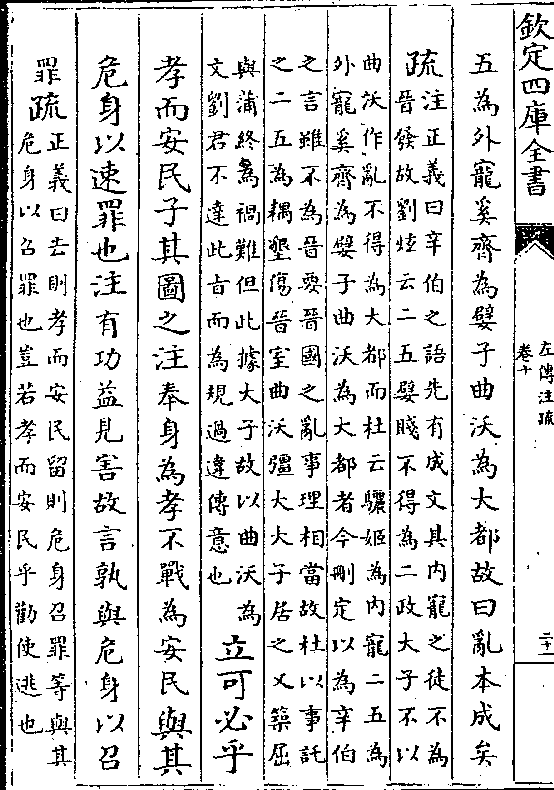 欽定四庫全書
左傳注疏
卷十
二十一
五為外寵奚齊為嬖子曲沃為大都故曰亂本成矣
疏注正義曰辛伯之語先有成文其內寵之徒不為
晉發故劉炫云二五嬖賤不得為二政大子不以
曲沃作亂不得為大都而杜云驪姬為內寵二五為
外寵奚齊為嬖子曲沃為大都者今刪定以為辛伯
之言雖不為晉要晉國之亂事理相當故杜以事託
之二五為耦墾傷晉室曲沃彊大大子居之又築屈
與蒲終為禍難但此據大子故以曲沃為
文劉君不達此旨而為規過違傳意也
立可必乎
孝而安民子其圖之注奉身為孝不戰為安民與其
危身以速罪也注有功益見害故言孰與危身以召
罪疏正義曰去則孝而安民留則危身召罪等與其
危身以召罪也豈若孝而安民乎勸使逃也